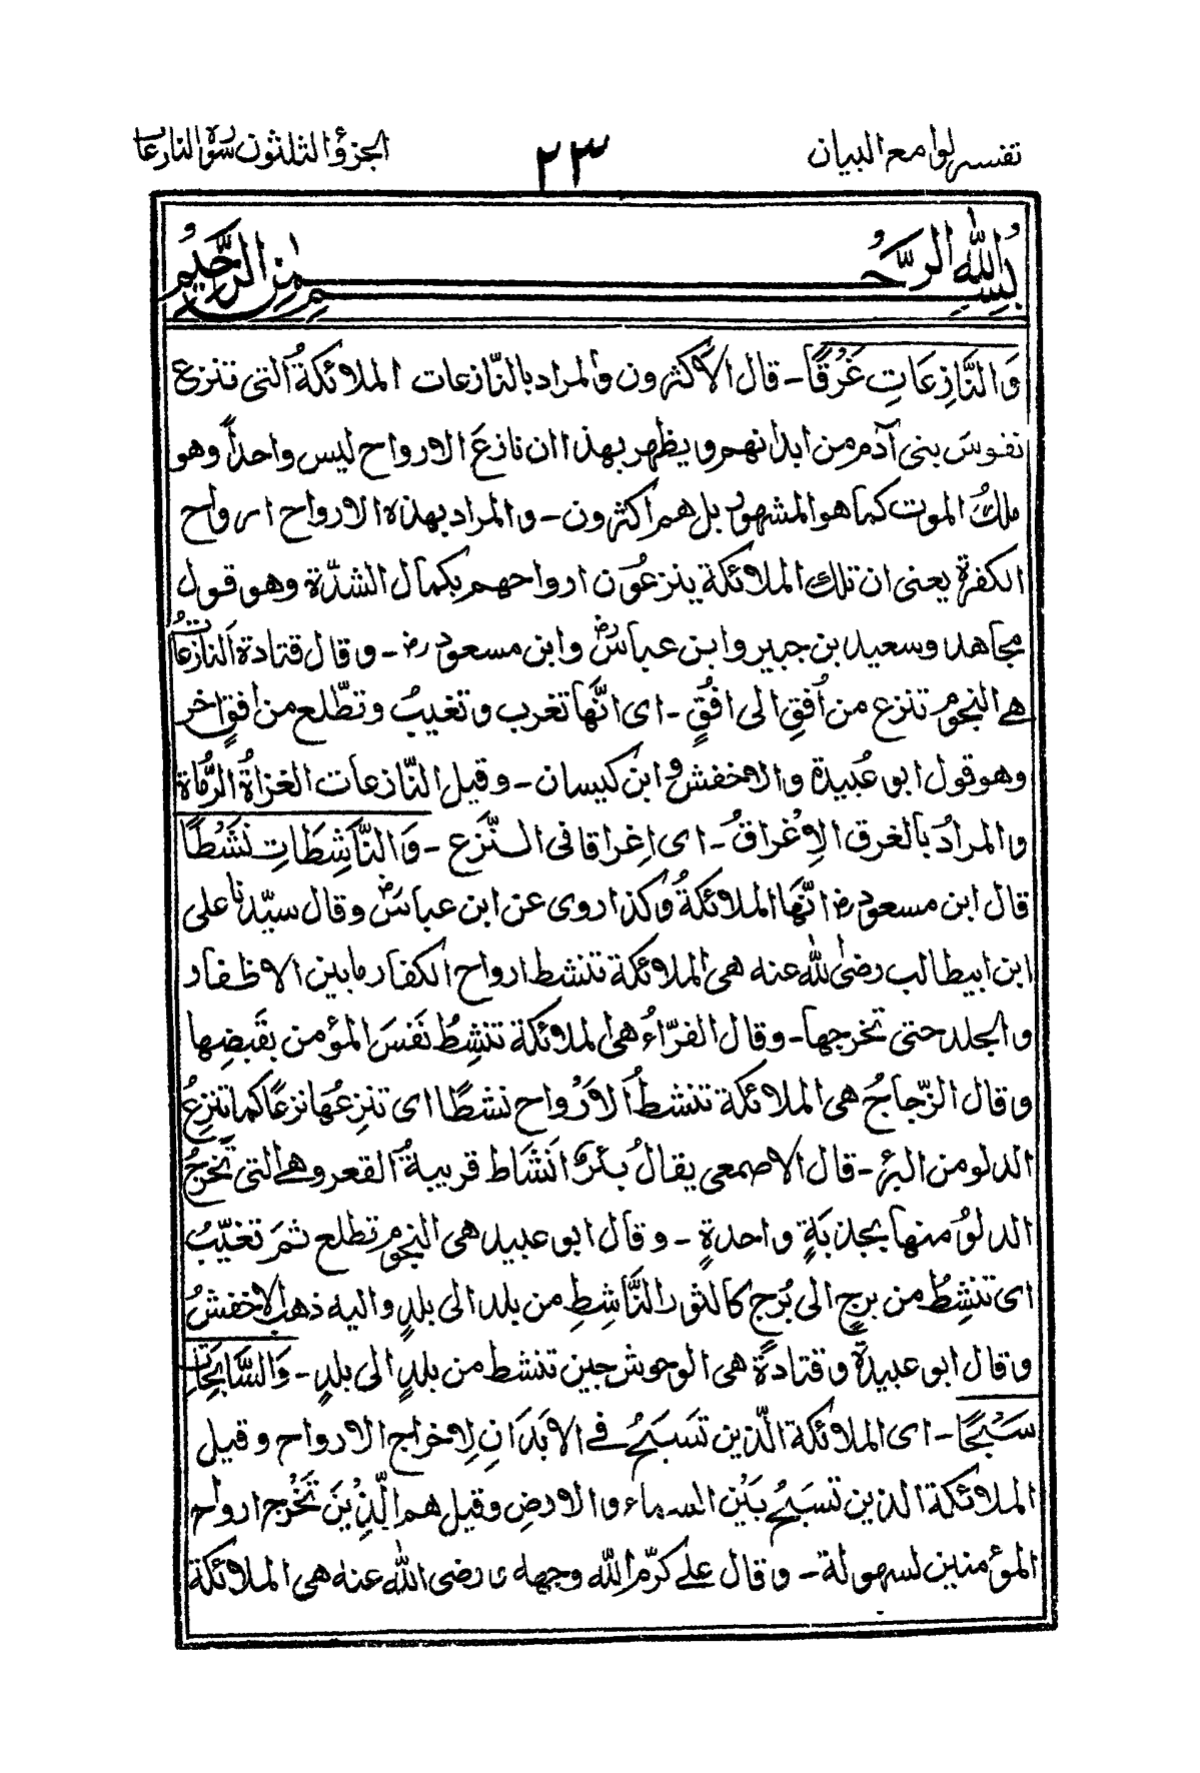 تفسير لوامع البيان ٢٣ الجزؤ الثلثون سورة النازعات
بسم الله الرحمن الرحيم
وَالنَّازِعَاتِ غَرْقًا - قال الأكثرون والمراد بالنّازعات الملائكةُ التى تنزع
نفوسَ بنى آدم من ابدانهم ويظهر بهذا ان نازعَ الارواح ليس واحداً وهو
ملكُ الموت كما هو المشهور بل هم اكثرون - والمراد بهذه الارواح ارواح
الكفرة يعنى ان تلك الملائكة ينزعُون ارواحهم بكمال الشدّة وهو قول
مجاهد وسعيد بن جبير وابن عباس رض وابن مسعود رض - وقال قتادة النازعات
هے النجوم تنزع من أُفقِ الى افقٍ - اى انّها تغرب وتغيبُ وتطّلع من افقٍ اخر
وهو قول ابو عُبيدة والاخفش و ابن كيسان - وقيل النّازعات الغزاةُ الرُّماة
والمرادُ بالغرق الِاغراقُ - اى اِغراقا فى النّزع - وَالنَّاشِطَاتِ نَشْطًا
قال ابن مسعود رض انّها الملائكةُ وكذا روى عن ابن عباس رض وقال سيّدنا على
ابن ابيطالب رضى الله عنه هى الملائكة تنشط ارواح الكفار ما بين الاظفار
والجلد حتى تخرجها - وقال الفرّاءُ هى الملائكة تنشِطُ نَفَسَ المؤمن بقَبضِها
وقال الزّجاجُ هى الملائكة تنشطُ الاَرْواح نشطًا اى تنزِعُها نزعًا كما تنزعُ
الدلو من البئر - قال الاصمعى يقالُ بئرٌ انَشَاط قريبةُ القعر وهے التى تَخرجُ
الدلوُ منها بجذبَةٍ واحدةٍ - وقال ابو عبيد هى النجوم تطلع ثمَ تغيّبُ
اى تنشِطُ من برجٍ الى بُرجٍ كالثور النَّاشِطِ من بلد الى بلدٍ واليه ذهب الاخفشُ
وقال ابو عبيدة وقتادة هى الوحوش حين تنشط من بلدٍ الى بلدٍ - وَالسَّابِحَاتِ
سَبْحًا - اى الملائكة الّذين تَسبَحُ فے الاَبدَانِ لِاخراج الارواح وقيل
الملائكة الذين تسبَحُ بَيْن السماء والارضِ وقيل هم الّذِيْنَ تَخْرج ارواح
المؤمنين لسهولة - وقال علے كرّم الله وجهه رضى الله عنه هى الملائكة